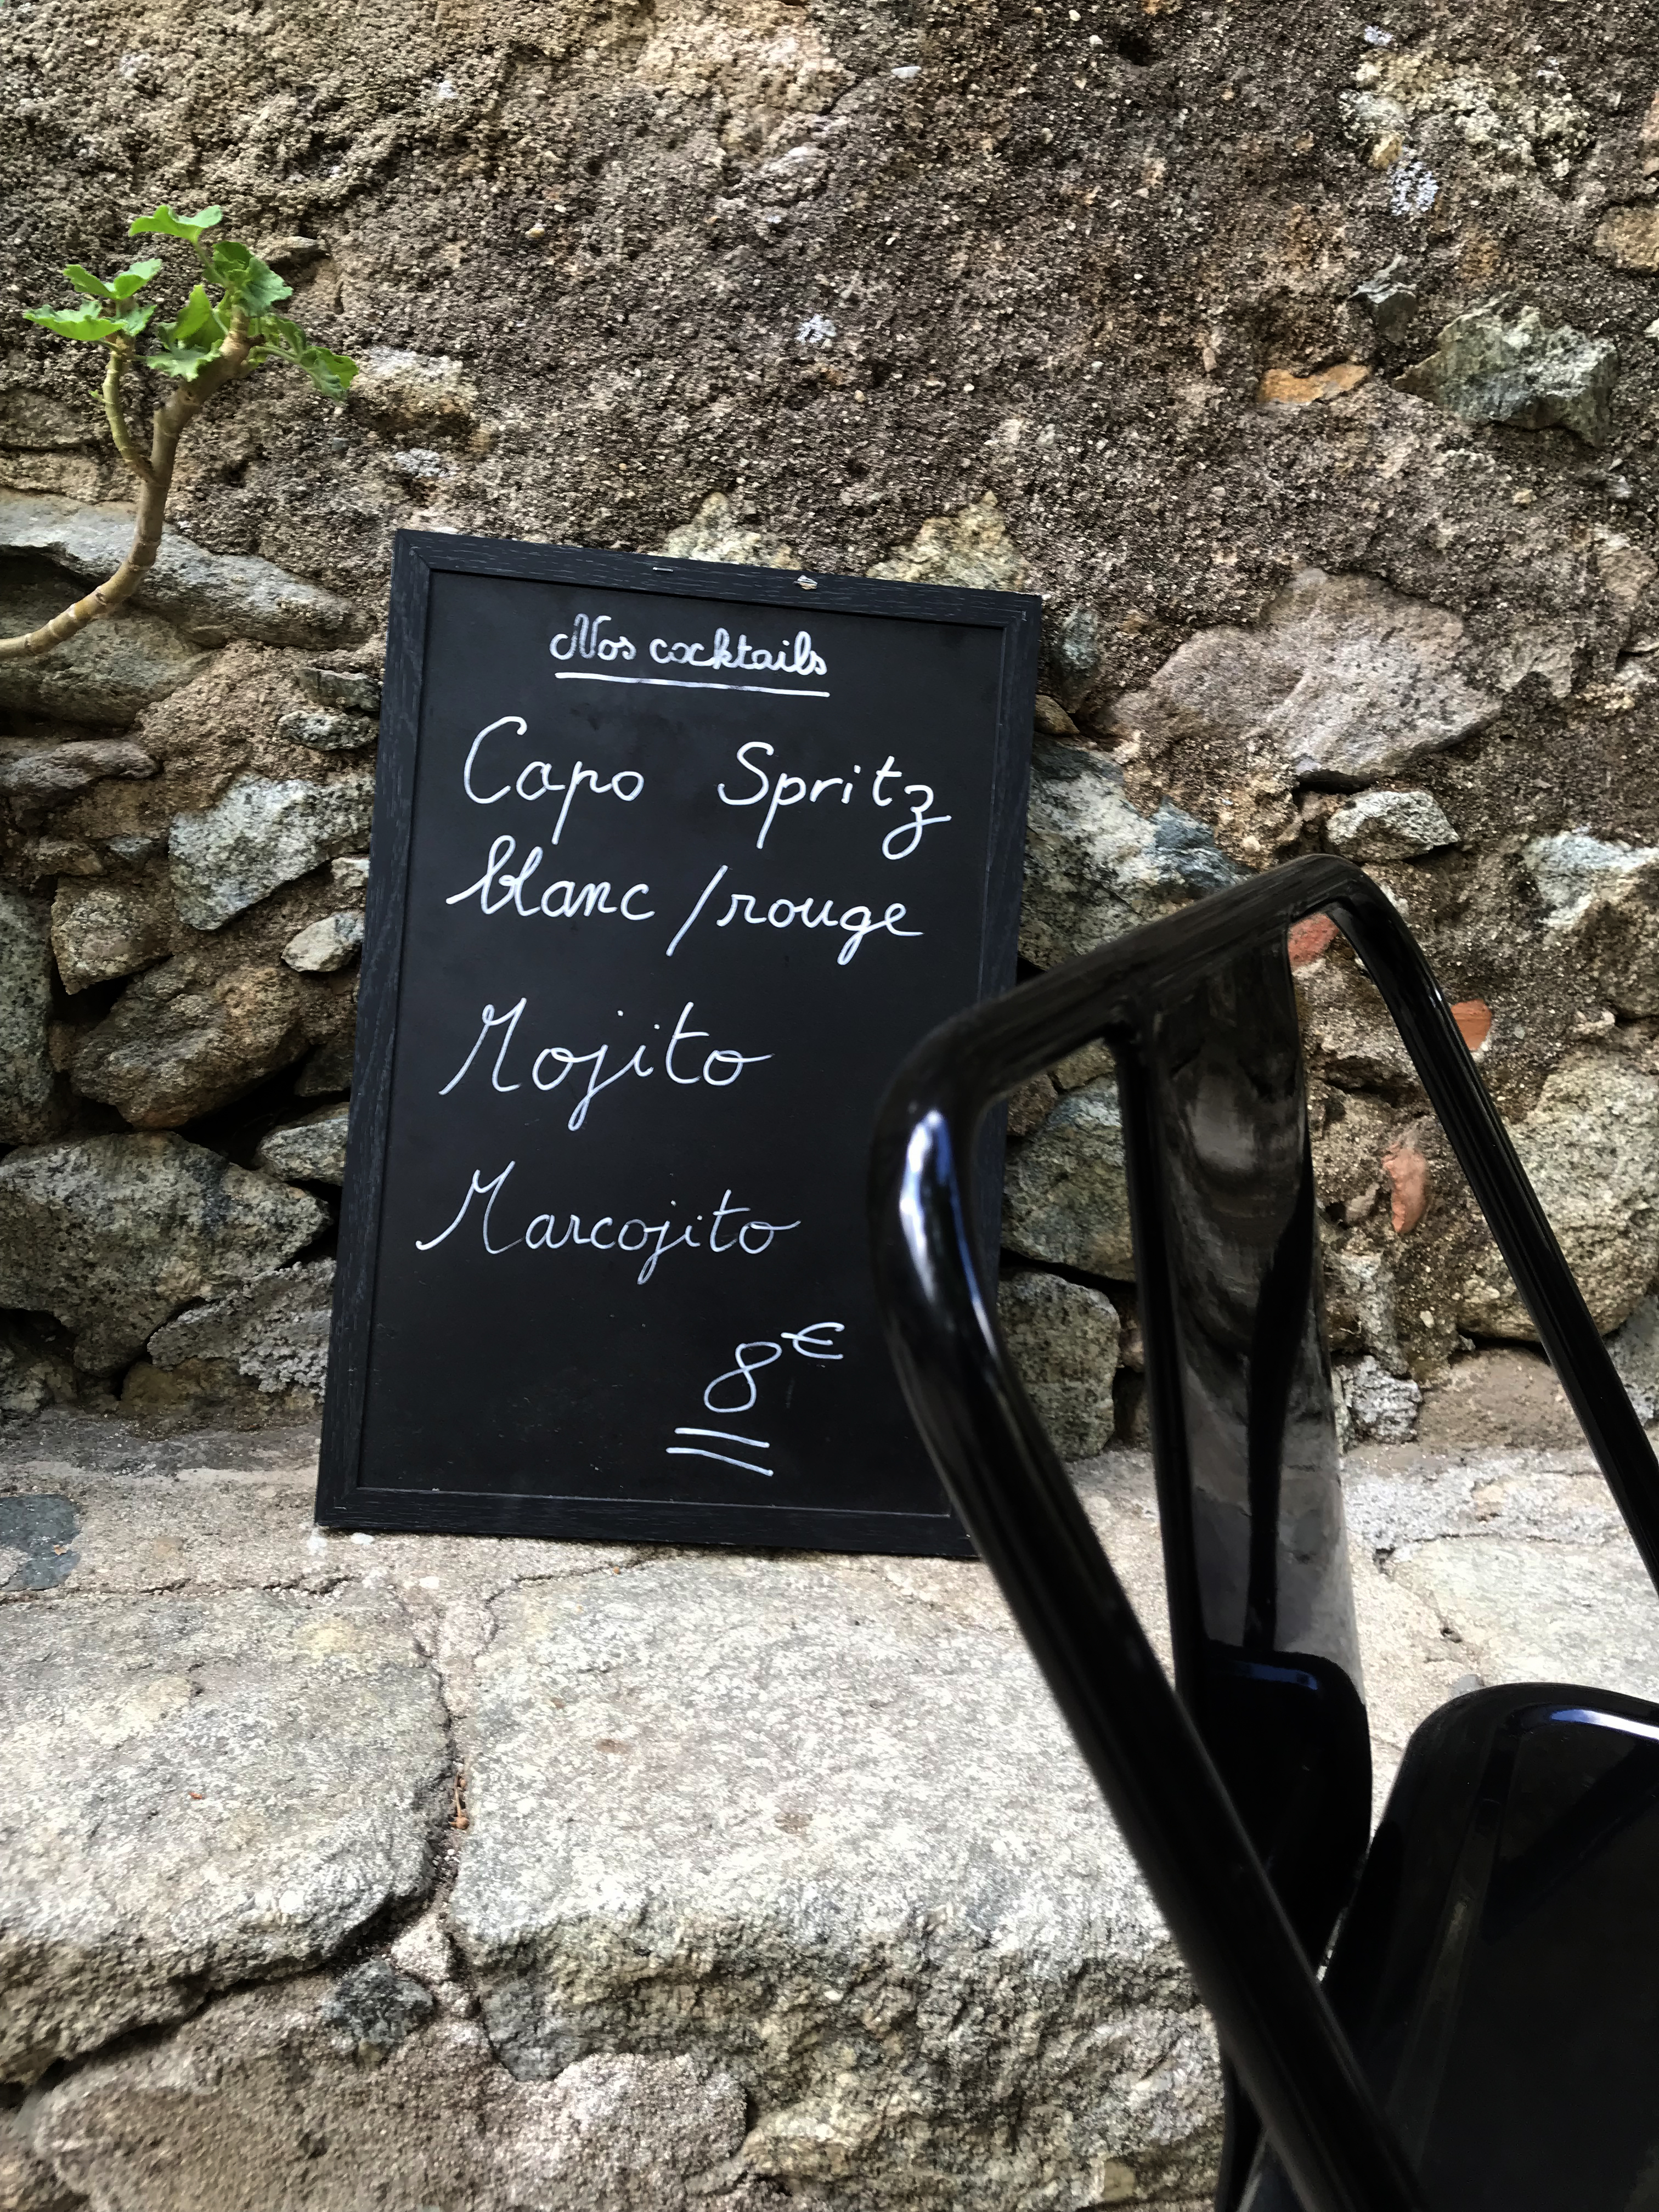 Nos cocktails
Capo Spritz
blanc / rouge
Mojito
Marcojito
8€